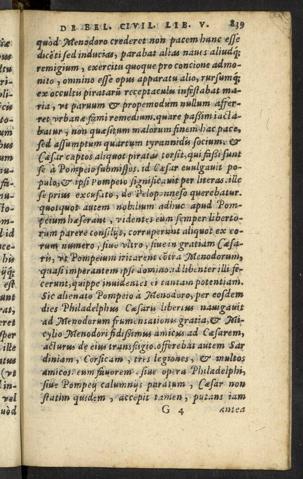 DE BEL. CIVIL. LIB. V. 839
quòd Menodoro crederet non pacem hanc esse
dicẽti sed inducias, parabat alias naues aliudq́;
remigium, exercitu quoque pro concione admo-
nito, omnino esse opus apparatu alio, rursumq́;
ex occultu piratarũ receptaculu infestabat ma-
ria, vt paruum & propemodum nullum affer-
ret vrbanæ fami remedium, quare passim iacta
batur, non quæsitum malorum finem hac pace,
sed assumptum quartum tyrannidis socium. &
Cæsar captos aliquot piratas torsit, qui fassi sunt
se à Pompeio submissos. id Cæsar euulgauit po-
pulo, & ipsi Pompeio significauit per literas ille
se prius excusato, de Peloponneso querebatur.
quotquot autem nobilium adhuc apud Pom-
peium hæserant, videntes eum semper liberto-
rum parere consilijs, corruperunt aliquot ex eo-
rum numero, siue vltro, siue in gratiam Cæsa-
ris, vt Pompeium iritarent cõtra Menodorum,
quasi imperantem ipsi domino. id libenter illi fe-
cerunt, quippe inuidentes ei tantam potentiam.
Sic alienato Pompeio à Menodoro, per eosdem
dies Philadelphus Cæsaris libertus nauigauit
ad Menodorum frumentationis gratia, & Mi-
cylio Menodori fidissimus amicus ad Cæsarem,
acturus de eius transfugio. offerebat autem Sar
diniam, Corsicam, tres legiones, & multos
amicos. eum fauorem, siue opera Philadelphi,
siue Pompeij calumnijs paratum, Cæsar non
statim quidem, accepit tamen, putans iam
G 4 antea